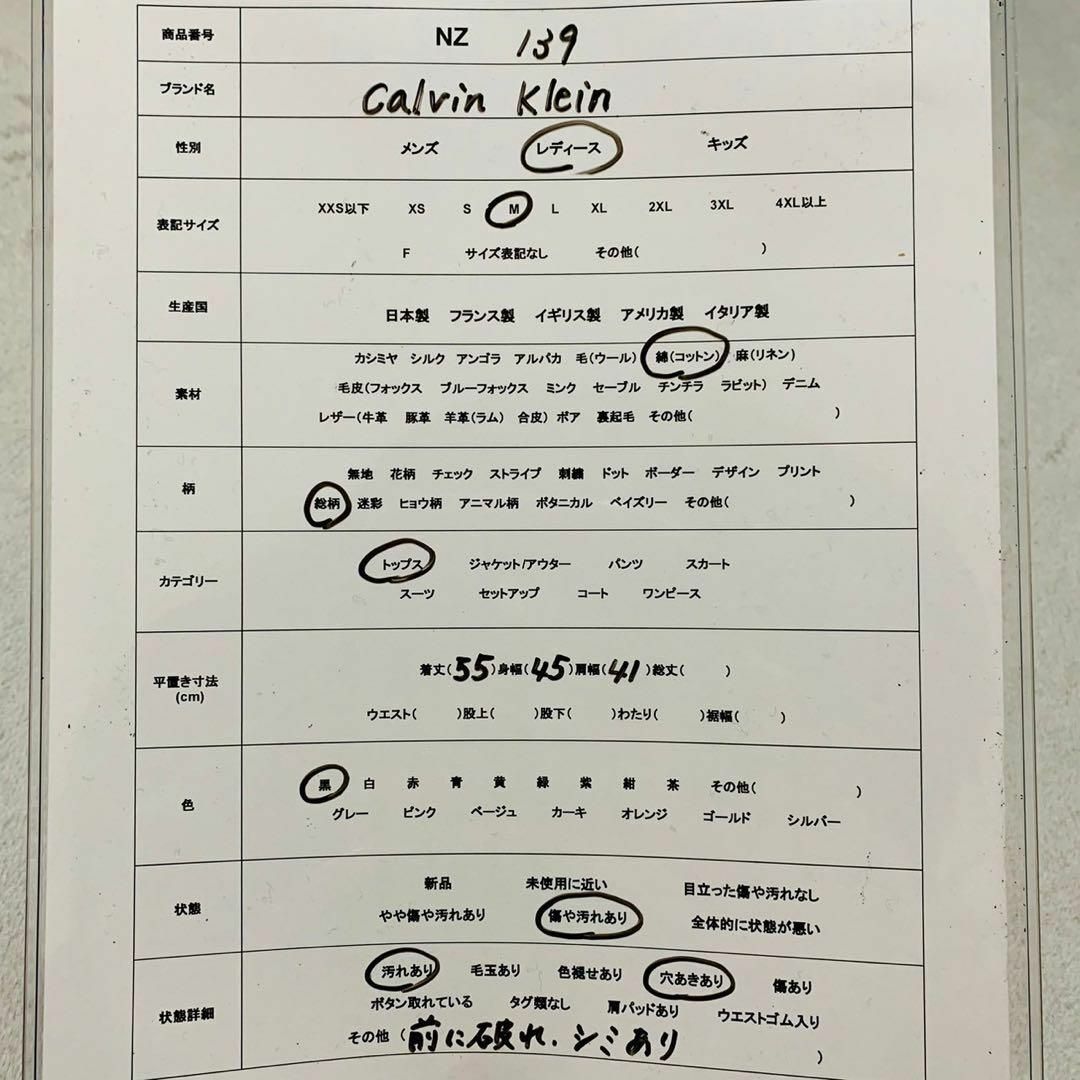 商品番号 NZ 139
ブランド名 Calvin Klein
性別 メンズ レディース キッズ
表記サイズ XXS以下 XS S M L XL 2XL 3XL 4XL以上
F サイズ表記なし その他( )
生産国 日本製 フランス製 イギリス製 アメリカ製 イタリア製
素材 カシミヤ シルク アンゴラ アルパカ 毛(ウール) 綿(コットン) 麻(リネン)
毛皮(フォックス ブルーフォックス ミンク セーブル チンチラ ラビット) デニム
レザー(牛革 豚革 羊革(ラム) 合皮) ボア 裏起毛 その他( )
柄 無地 花柄 チェック ストライプ 刺繍 ドット ボーダー デザイン プリント
総柄 迷彩 ヒョウ柄 アニマル柄 ボタニカル ペイズリー その他( )
カテゴリー トップス ジャケット/アウター パンツ スカート
スーツ セットアップ コート ワンピース
平置き寸法 (cm) 着丈(55)身幅(45)肩幅(41)総丈( )
ウエスト( )股上( )股下( )わたり( )裾幅( )
色 黒 白 赤 青 黄 緑 紫 紺 茶 その他( )
グレー ピンク ベージュ カーキ オレンジ ゴールド シルバー
状態 新品 未使用に近い 目立った傷や汚れなし
やや傷や汚れあり 傷や汚れあり 全体的に状態が悪い
状態詳細 汚れあり 毛玉あり 色褪せあり 穴あきあり 傷あり
ボタン取れている タグ類なし 肩パッドあり ウエストゴム入り
その他 (前に破れ、シミあり )